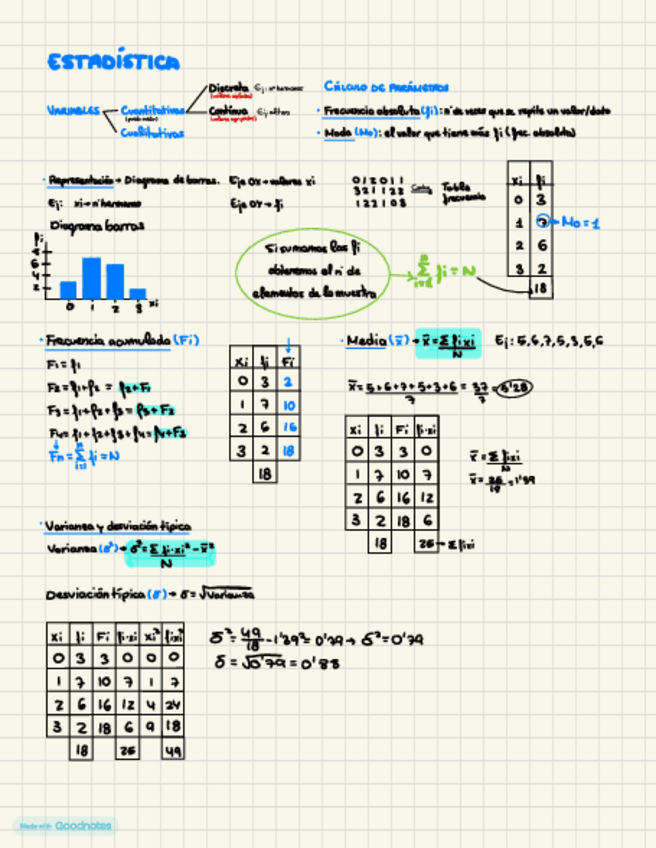 ESTADÍSTICA
VARIABLES Cuantitativas Discreta Ej: nº hermanos
Continua Ej: altura
Cualitativas
CÁLCULO DE PARÁMETROS
· Frecuencia absoluta (fi): nº de veces que se repite un valor/dato
· Moda (Mo): el valor que tiene más fi (frec. absoluta)
· Representación → Diagrama de barras. Eje OX → valores xi
Ej: xi → nº hermanos Eje OY → fi
0 1 2 0 1 1
3 2 1 1 2 3
1 2 2 1 0 3
Tabla frecuencia
xi fi
0 3
1 7 → Mo = 1
2 6
3 2
18
Diagrama barras
fi
6
4
2
0 1 2 3 xi
Si sumamos las fi
obtenemos el nº de
elementos de la muestra
Σ fi = N
· Frecuencia acumulada (Fi)
F1 = f1
F2 = f1+f2 = f2+F1
F3 = f1+f2+f3 = f3+F2
F4 = f1+f2+f3+f4 = f4+F3
Fn = Σ fi = N
xi fi Fi
0 3 3
1 7 10
2 6 16
3 2 18
18
· Media (x̄) → x̄ = Σ fixi / N Ej: 5,6,7,5,3,5,6
x̄ = 5+6+7+5+3+6 / 7 = 37/7 = 5'28
xi fi Fi fi·xi
0 3 3 0
1 7 10 7
2 6 16 12
3 2 18 6
18 25 → Σ fixi
x̄ = Σ fixi / N
x̄ = 25/18 = 1'39
· Varianza y desviación típica
Varianza (σ²) → σ² = Σ fi·xi² / N - x̄²
Desviación típica (σ) → σ = √varianza
xi fi Fi fi·xi xi² fixi²
0 3 3 0 0 0
1 7 10 7 1 7
2 6 16 12 4 24
3 2 18 6 9 18
18 25 49
σ² = 49/18 - 1'39² = 0'79 → σ² = 0'79
σ = √0'79 = 0'88
Made with Goodnotes